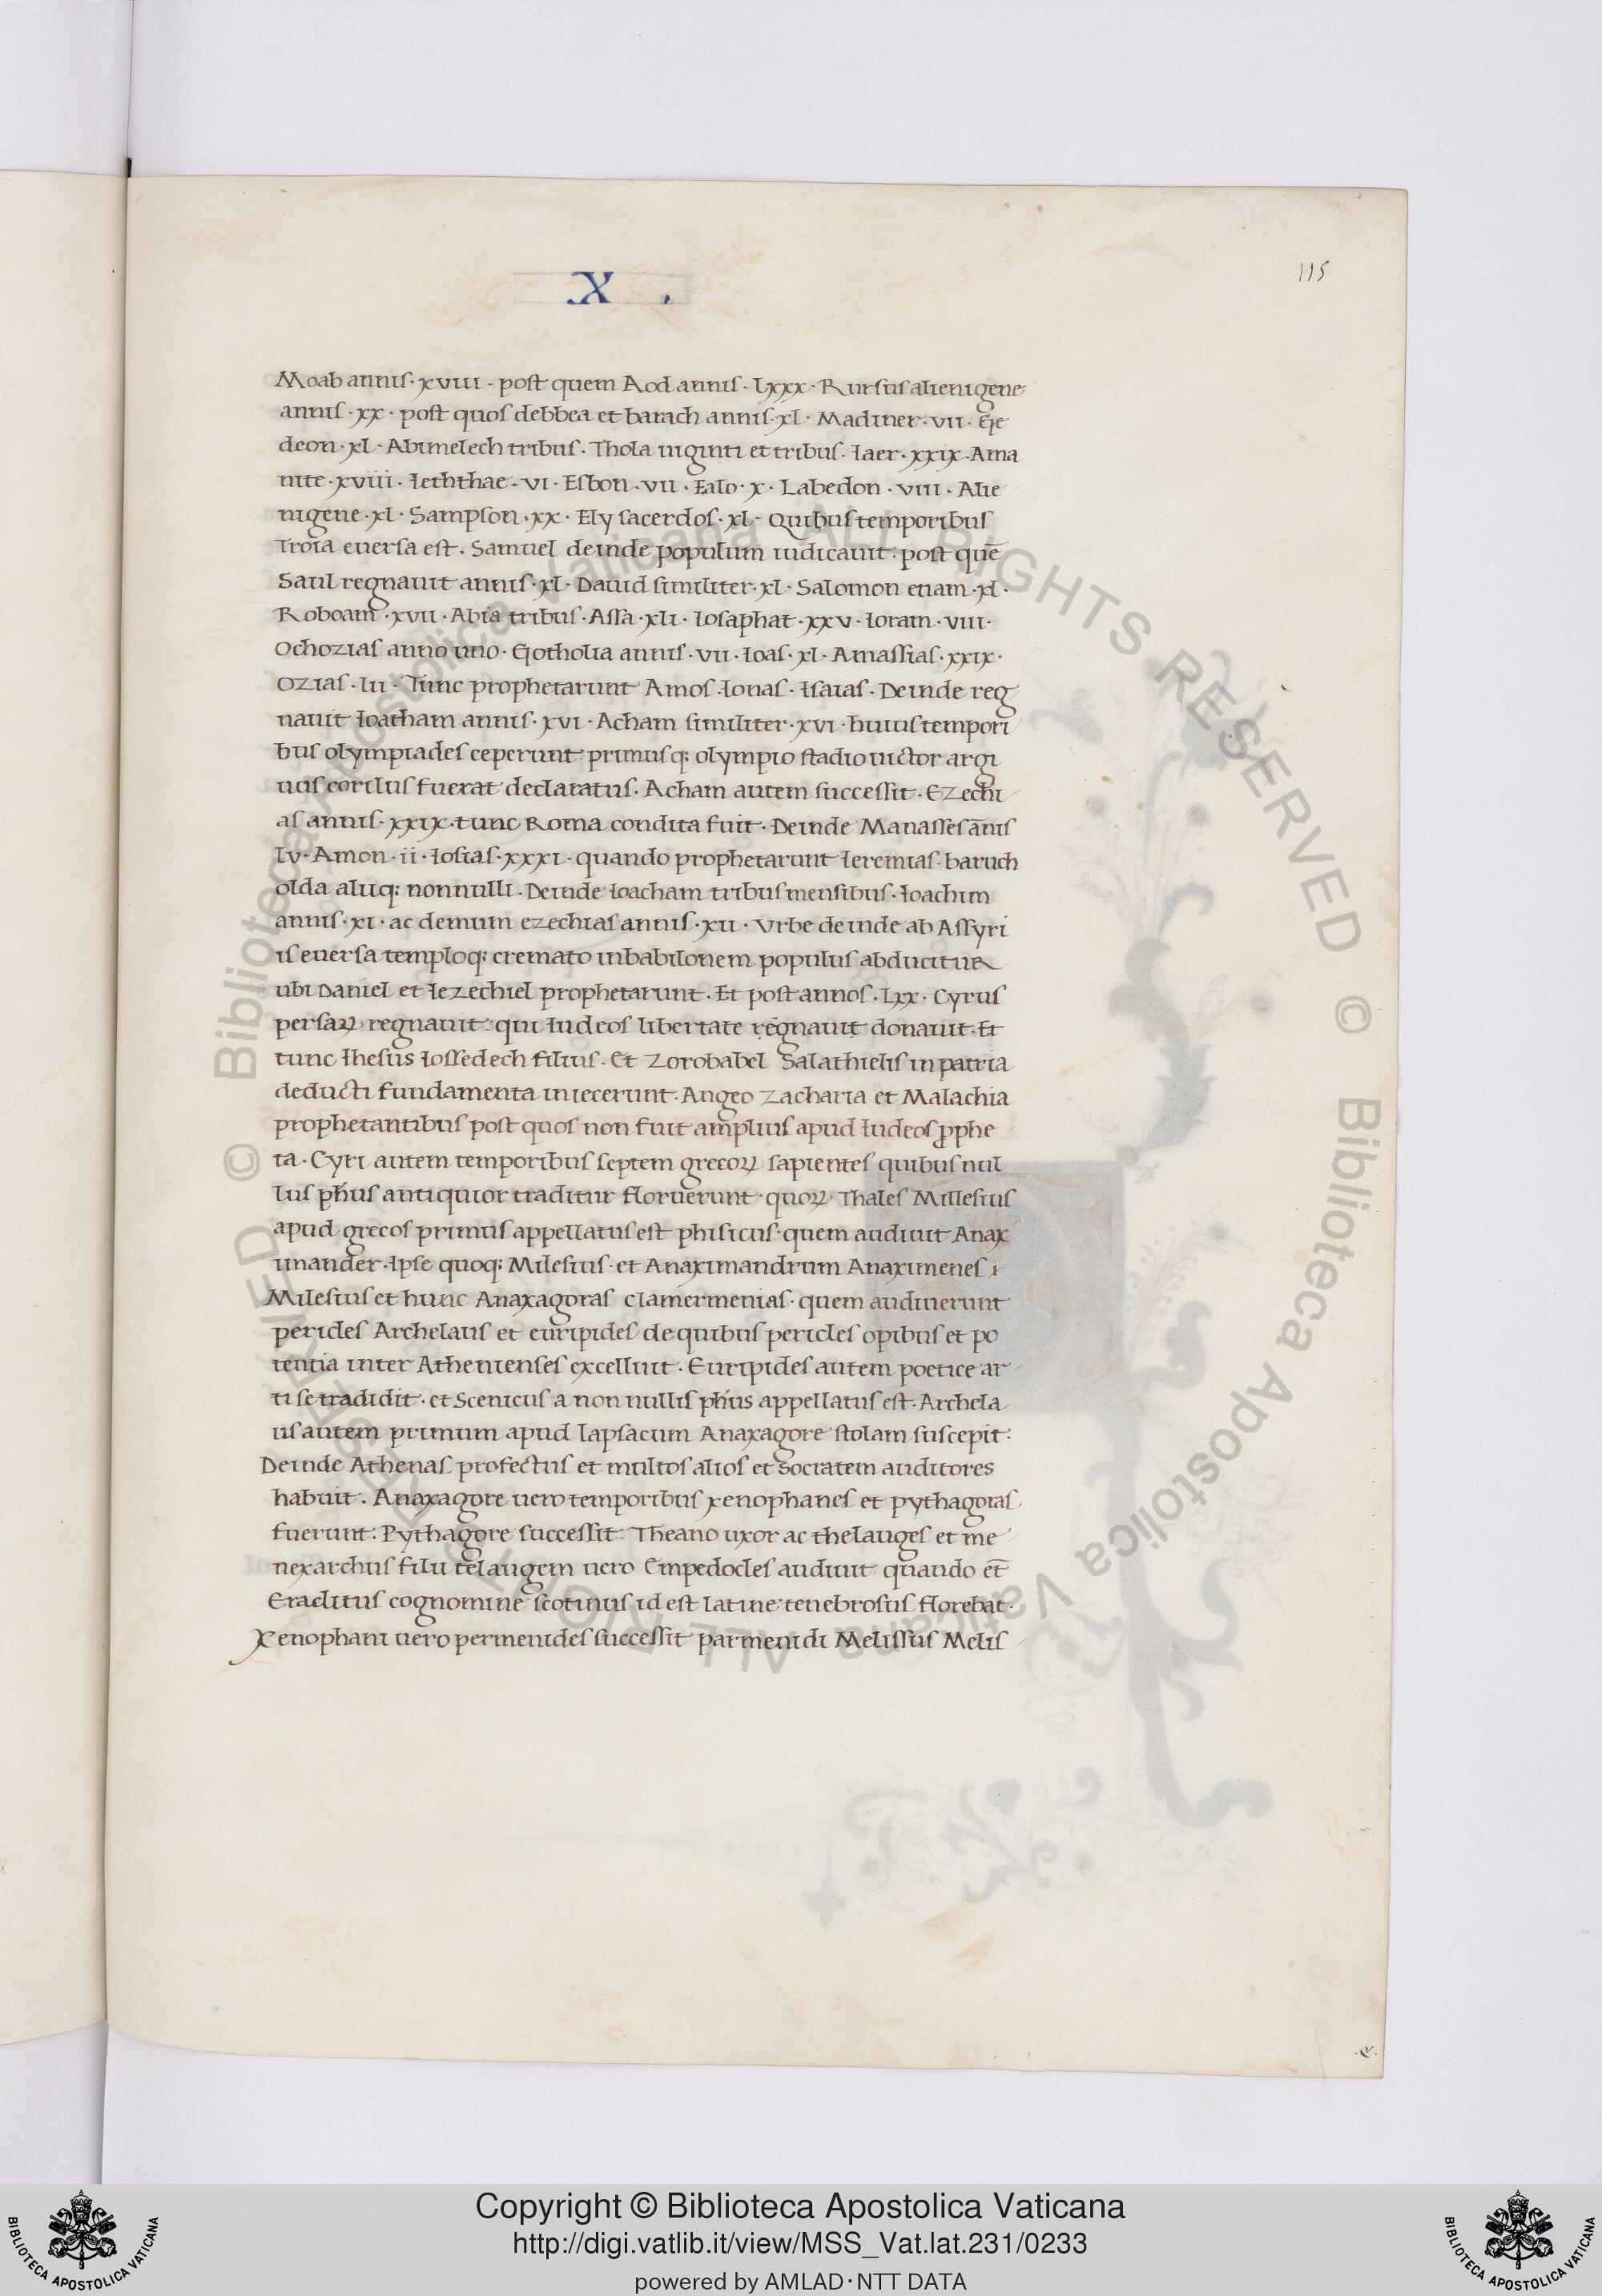 .X.
115
Moab annis · xviii · post quem Aod annis · lxxx · Rursus alienigene
annis · xx · post quos debbea et barach annis · xl · Madiner · vii · Ge
deon · xl · Abimelech tribus · Thola uiginti et tribus · Iaer · xxix · Ama
nite · xviii · Ieththae · vi · Esbon · vii · Ealo · x · Labedon · viii · Alie
nigene · xl · Sampson · xx · Ely sacerdos · xl · Quibus temporibus
Troia euersa est · Samuel deinde populum iudicauit : post quē
Saul regnauit annis · xl · Dauid similiter · xl · Salomon etiam · xl ·
Roboam · xvii · Abia tribus · Assa · xli · Iosaphat · xxv · Ioram · viii ·
Ochozias anno uno · Gotholia annis · vii · Ioas · xl · Amassias · xxix ·
Ozias · lii · Tunc prophetarunt Amos · Ionas · Isaias · Deinde reg
nauit Ioatham annis · xvi · Acham similiter · xvi · huius tempori
bus olympiades ceperunt primusq; olympio stadio uictor argi
uus corilus fuerat declaratus · Acham autem successit · Ezechi
as annis · xxix · tunc Roma condita fuit · Deinde Manasses ānis
lv · Amon · ii · Iosias · xxxi · quando prophetarunt Ieremias · baruch
olda aliiq; nonnulli · Deinde Ioacham tribus mensibus · Ioachim
annis · xi · ac demum ezechias annis · xii · Vrbe deinde ab Assyri
is euersa temploq; cremato in babilonem populus abducitur
ubi Daniel et Iezechiel prophetarunt · Et post annos · lxx · Cyrus
persaꝝ regnauit : qui Iudeos libertate regnauit donauit · Et
tunc Ihesus Iossedech filius · Et Zorobabel Salathielis in patria
deducti fundamenta iniecerunt · Angeo Zacharia et Malachia
prophetantibus post quos non fuit amplius apud Iudeos ꝓphe
ta · Cyri autem temporibus septem grecoꝝ sapientes quibus nul
lus ph̄us antiquior traditur floruerunt · quoꝝ Thales Millesius
apud grecos primus appellatus est phisicus · quem audiuit Anax
imander · Ipse quoq; Milesius · et Anaximandrum Anaximenes
Milesius et hunc Anaxagoras clamermenias · quem audiuerunt
pericles Archelaus et euripides de quibus pericles opibus et po
tentia inter Athenienses excelluit · Euripides autem poetice ar
ti se tradidit · et Scenicus a non nullis ph̄us appellatus est · Archela
us autem primum apud lapsacum Anaxagore stolam suscepit :
Deinde Athenas profectus et multos alios et Socratem auditores
habuit · Anaxagore uero temporibus xenophanes et pythagoras
fuerunt : Pythagore successit : Theano uxor ac thelauges et me
nexarchus filii telaugem uero Empedocles audiuit quando et̄
Eraclitus cognomine scotinus id est latine tenebrosus florebat ·
Xenophani uero permenides successit parmenidi Melissus Melis
Copyright © Biblioteca Apostolica Vaticana
http://digi.vatlib.it/view/MSS_Vat.lat.231/0233
powered by AMLAD·NTT DATA
BIBLIOTECA APOSTOLICA VATICANA
BIBLIOTECA APOSTOLICA VATICANA
© Biblioteca Apostolica Vaticana ALL RIGHTS RESERVED
© Biblioteca Apostolica Vaticana ALL RIGHTS RESERVED